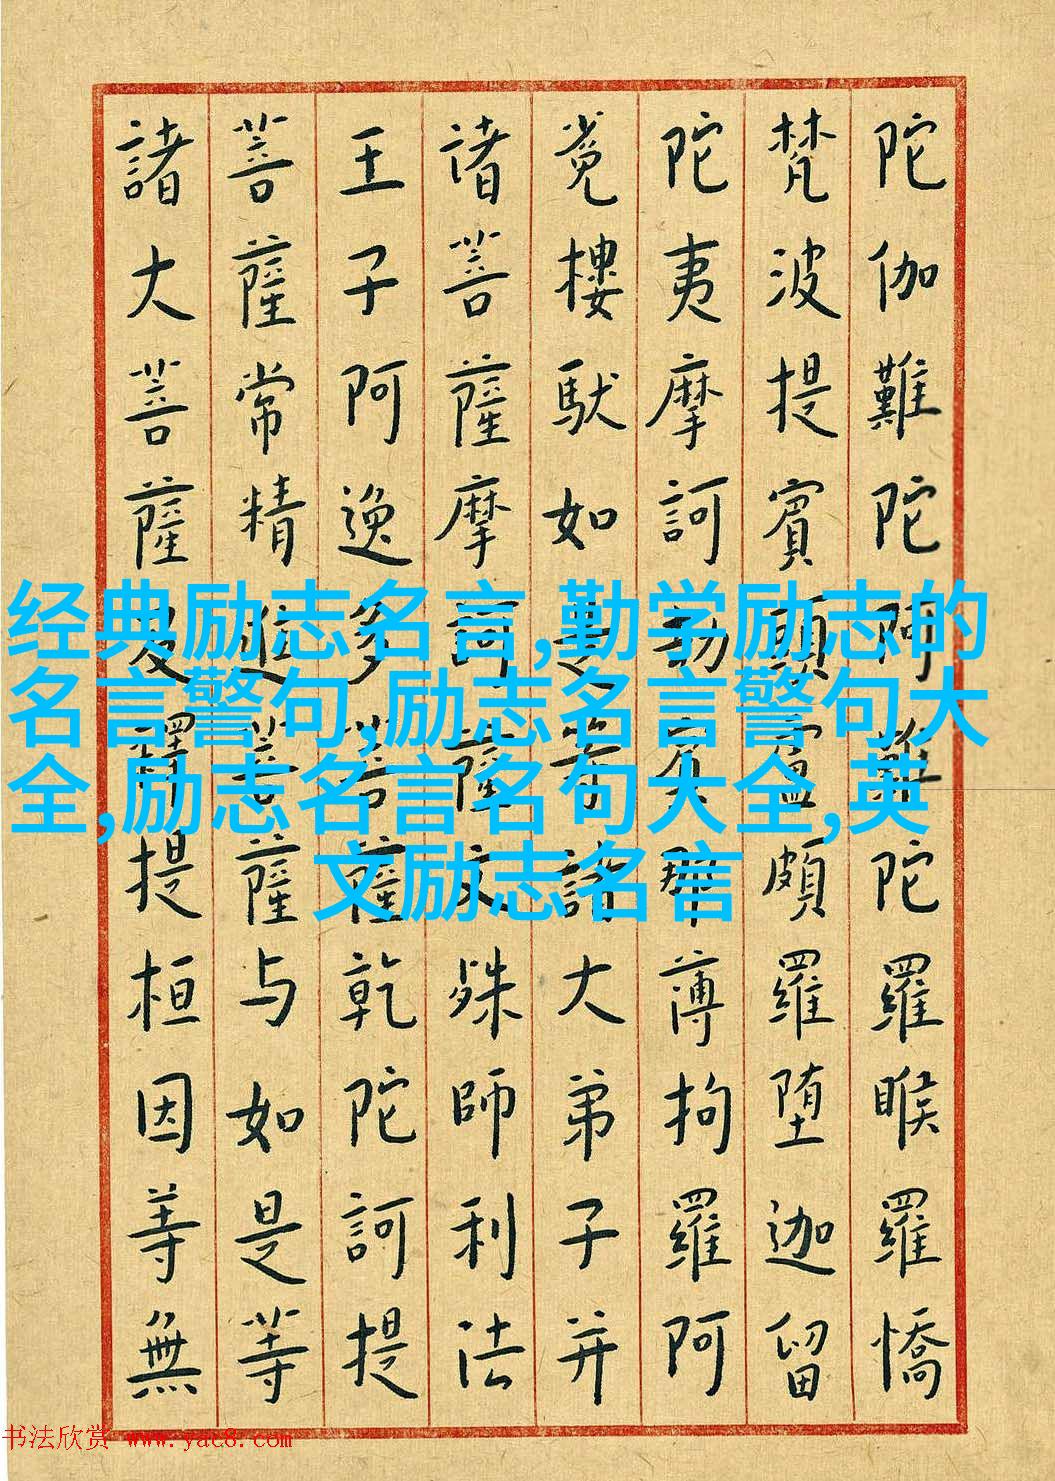 陀伽難陀阿難陀羅睺羅憍
梵波提賓頭盧頗羅堕迦留
陀夷摩訶劫賓那薄拘羅阿
㝹樓馱如是等諸大弟子并
诸菩薩摩訶薩文殊師利法
王子阿逸多菩薩乾陀訶提
菩薩常精進菩薩与如是等
諸大菩薩及釋提桓因等無
经典励志名言,勤学励志的
名言警句,励志名言警句大
全,励志名言名句大全,英
文励志名言
书法欣赏 www.yac8.com